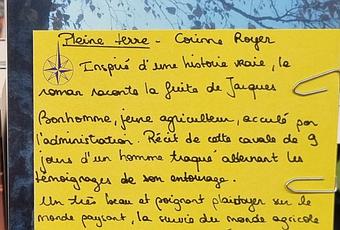 Pleine terre - Corinne Royer
Inspiré d'une histoire vraie, le
roman raconte la fuite de Jacques
Bonhomme, jeune agriculteur, acculé par
l'administration. Récit de cette cavale de 9
jours d'un homme traqué alternant les
témoignages de son entourage.
Un très beau et poignant plaidoyer sur le
monde paysant, la survie du monde agricole